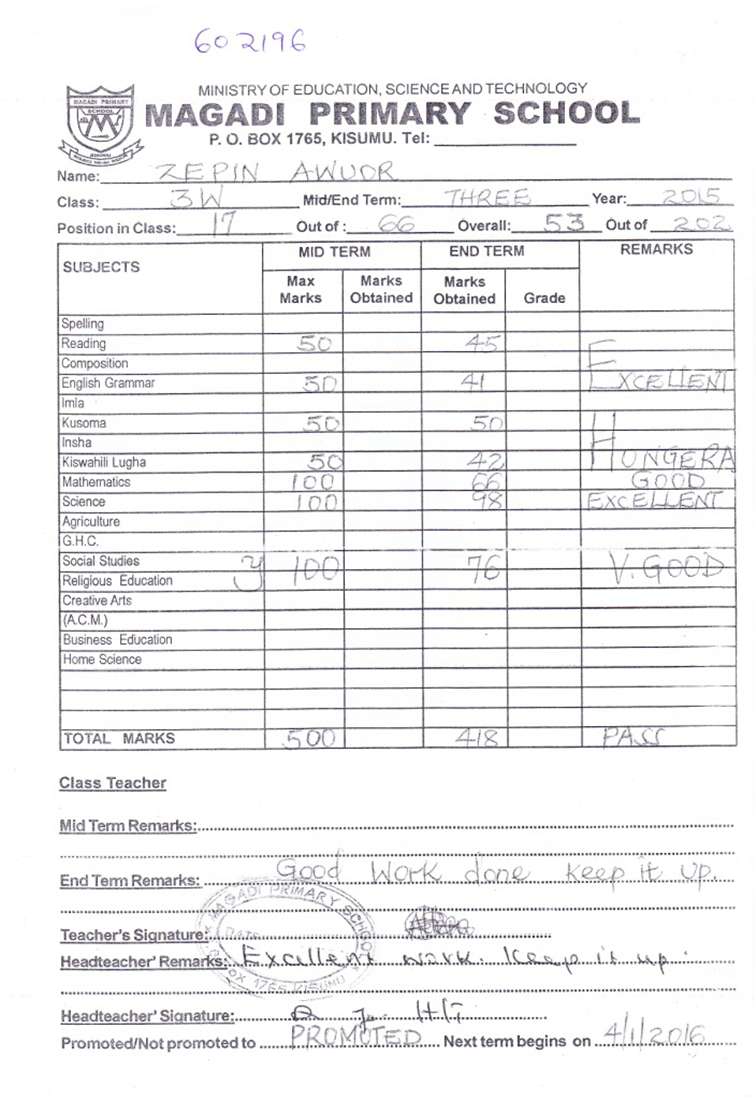 602196
MINISTRY OF EDUCATION, SCIENCE AND TECHNOLOGY
MAGADI PRIMARY SCHOOL
MAGADI PRIMARY SCHOOL
P. O. BOX 1765, KISUMU. Tel:
Name: ZEPIN AWUOR
Class: 3W Mid/End Term: THREE Year: 2015
Position in Class: 17 Out of : 66 Overall: 53 Out of 202
SUBJECTS MID TERM END TERM REMARKS
Max Marks Marks Obtained Marks Obtained Grade
Spelling
Reading 50 45
Composition
English Grammar 50 41 EXCELLENT
Imla
Kusoma 50 50
Insha
Kiswahili Lugha 50 42 HUNGERA
Mathematics 100 66 GOOD
Science 100 98 EXCELLENT
Agriculture
G.H.C.
Social Studies
Religious Education 100 76 V. GOOD
Creative Arts
(A.C.M.)
Business Education
Home Science
TOTAL MARKS 500 418 PASS
Class Teacher
Mid Term Remarks:
End Term Remarks: Good Work done keep it up.
MAGADI PRIMARY SCHOOL
DATE
BOX 1765 KISUMU
Teacher's Signature:
Headteacher' Remarks: Excellent work. Keep it up.
Headteacher' Signature: H/T
Promoted/Not promoted to PROMOTED Next term begins on 4/1/2016